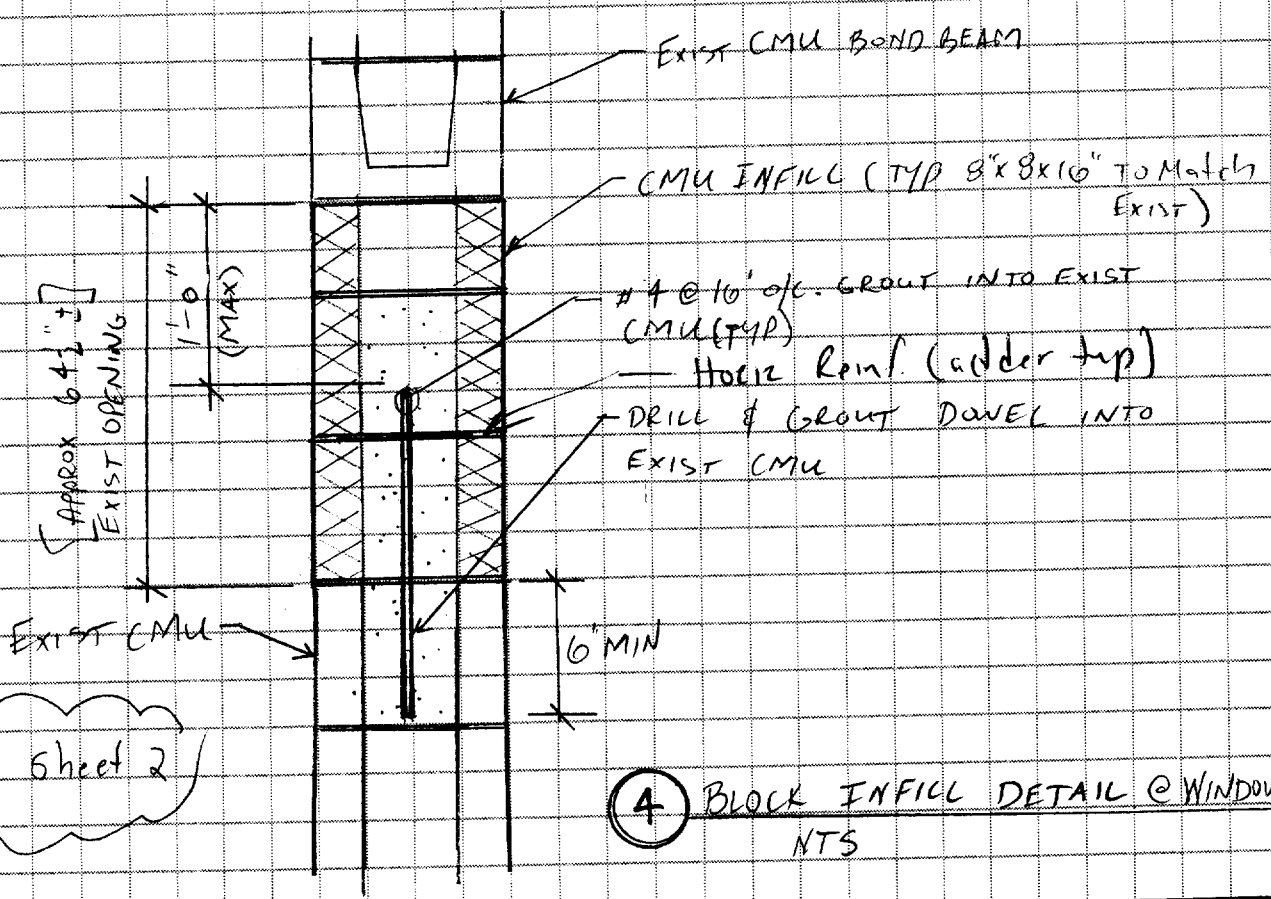 EXIST CMU BOND BEAM
CMU INFILL (TYP 8"x8x16" TO Match
EXIST)
#4 @ 16" o/c. GROUT INTO EXIST
CMU (TYP)
Horiz Reinf. (adder typ)
DRILL & GROUT DOWEL INTO
EXIST CMU
[APPROX 64½"±]
EXIST OPENING
1'-0"
(MAX)
EXIST CMU
6" MIN
Sheet 2
4 BLOCK INFILL DETAIL @ WINDOW
NTS